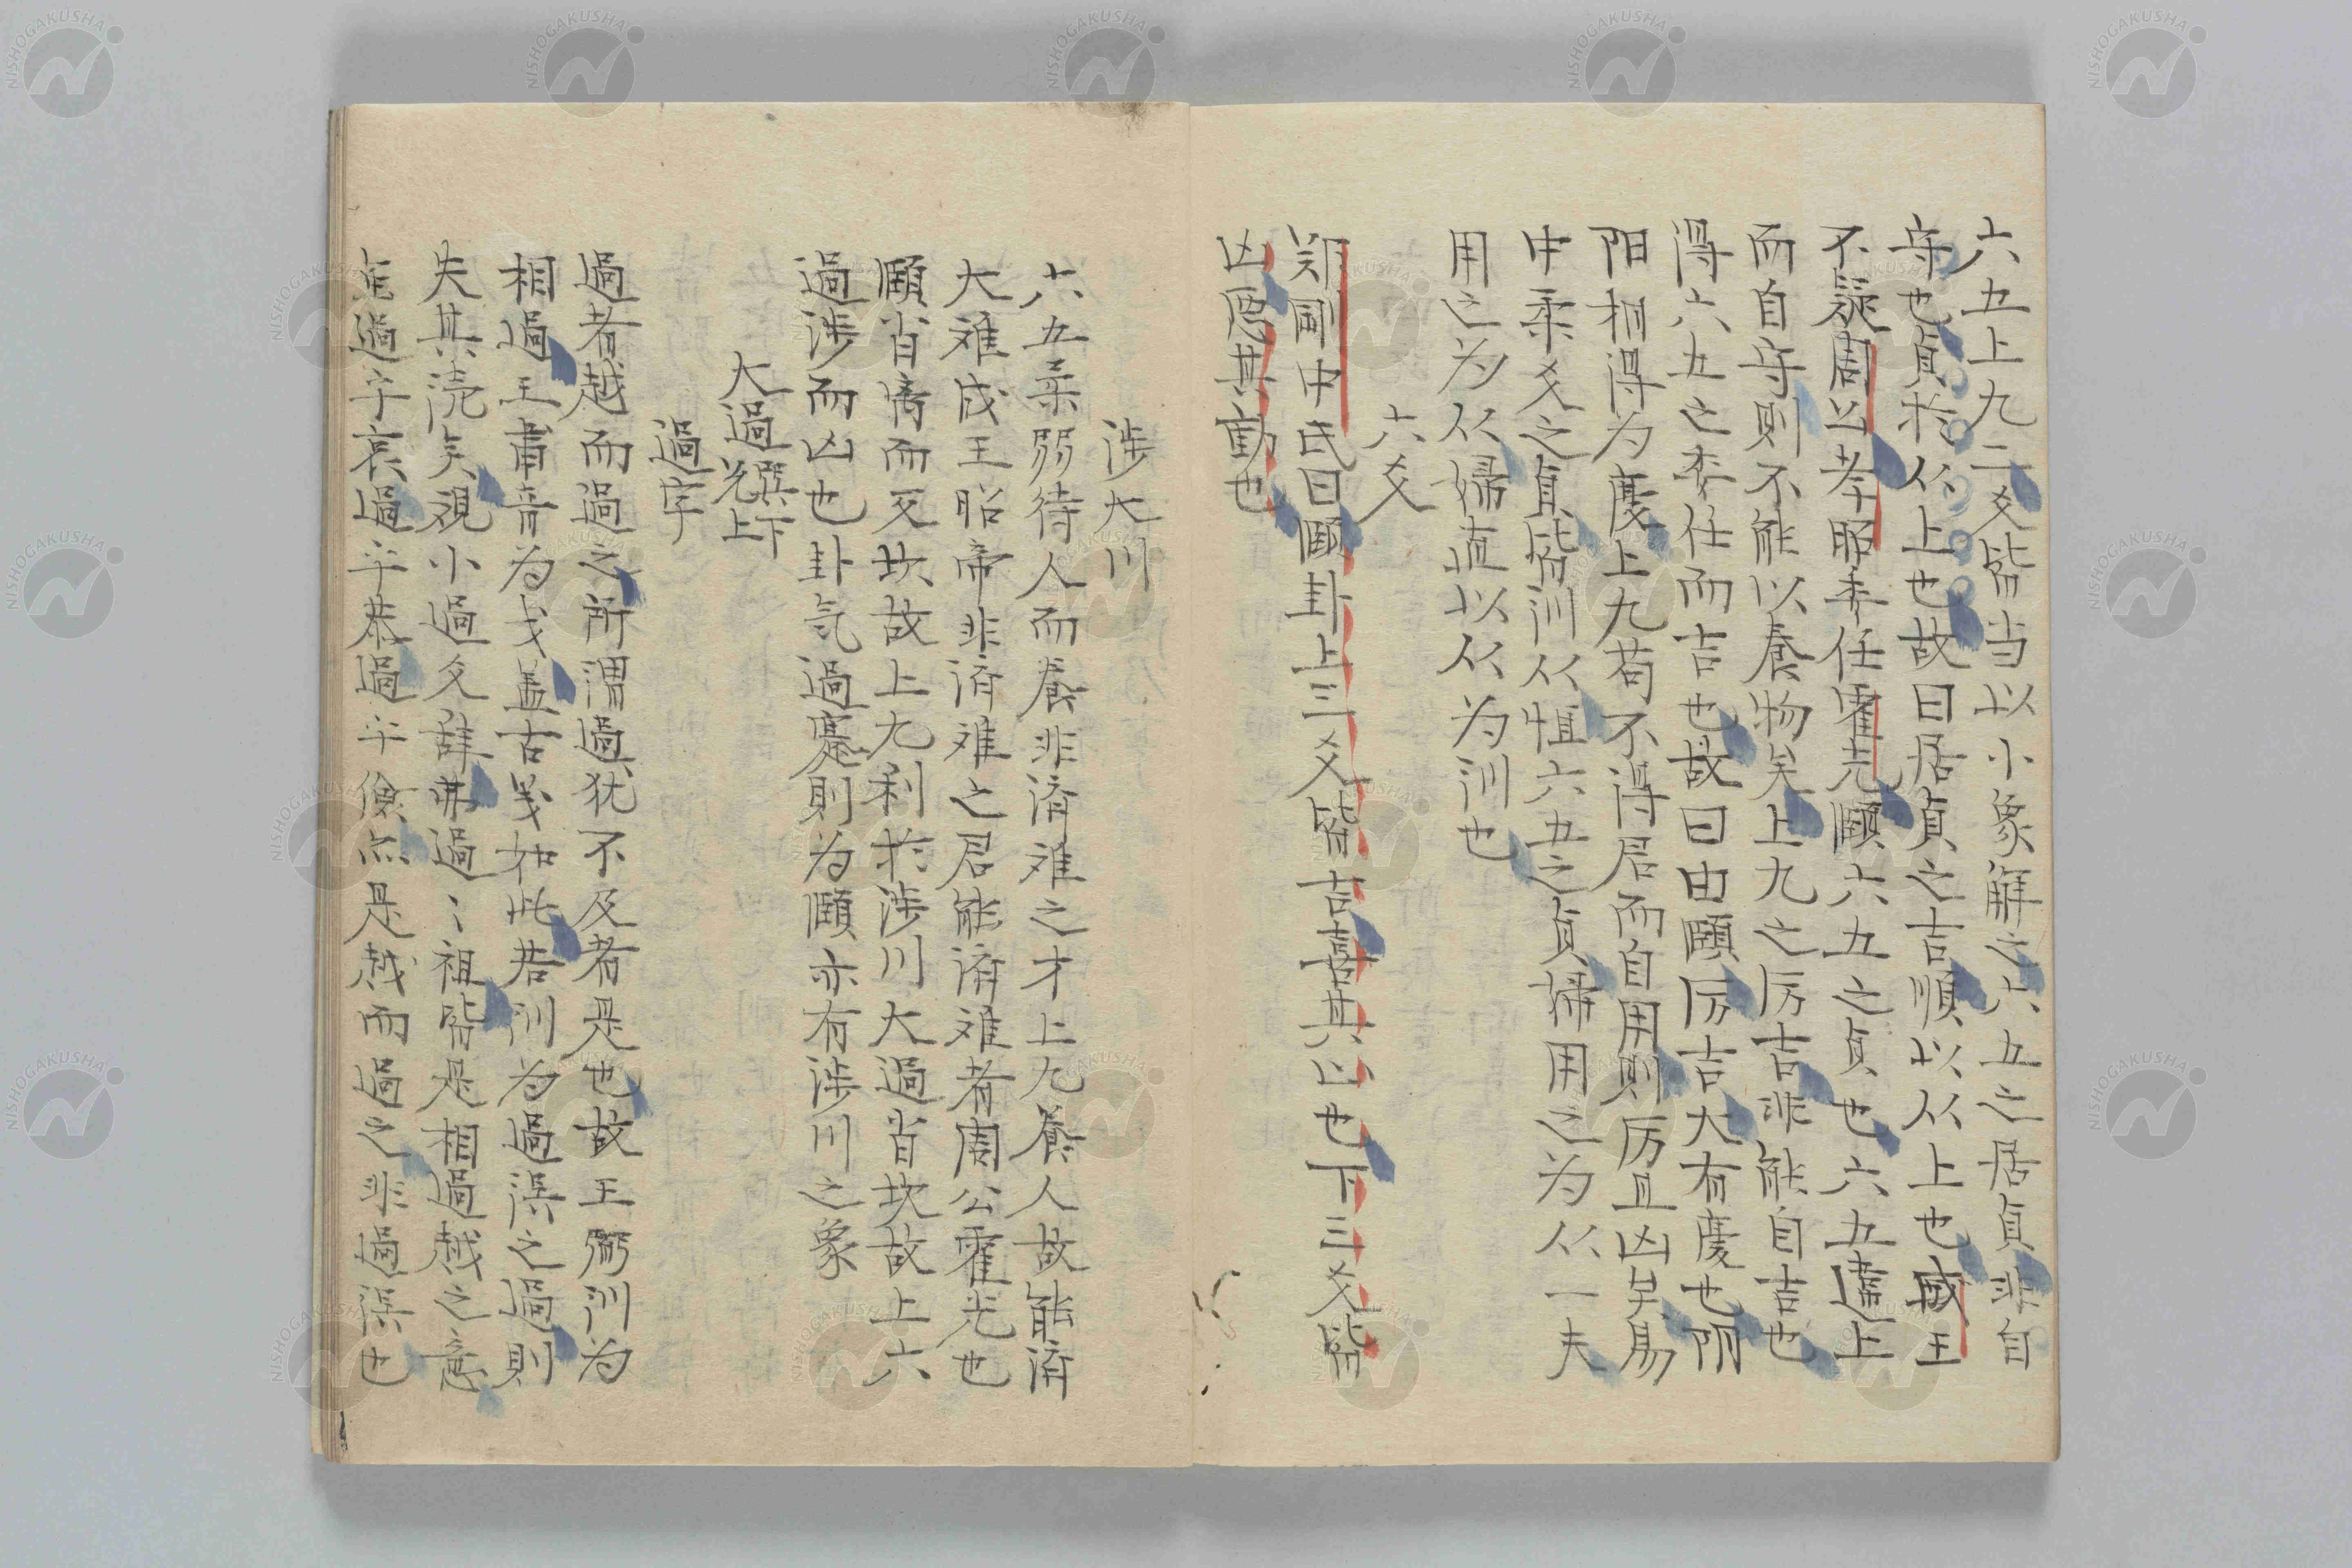 六五上九二爻皆当以小象解之六五之居貞非自
守也貞於从上也故曰居貞之吉順以从上也成王
不疑周公孝昭委任霍光頤六五之貞也六五違上
而自守則不能以養物矣上九之厉吉非能自吉也
得六五之委任而吉也故曰由頤厉吉大有慶也阴
阳相得为慶上九苟不得君而自用則厉且凶矣易
中柔爻之貞皆訓从恒六五之貞婦用之为从一夫
用之为从婦道以从为訓也
六爻
郑剛中氏曰頤卦上三爻皆吉喜其止也下三爻皆
凶惡其動也
渉大川
六五柔弱待人而養非済难之才上九養人故能済
大难成王昭帝非済难之君能済难者周公霍光也
頤肖离而反坎故上九利於渉川大過肖坎故上六
過渉而凶也卦气過蹇則为頤亦有渉川之象
大過 巽下兌上
過字
過者越而過之所謂過犹不及者是也故王弼訓为
相過王肅音为戈盖古義如此若訓为過誤之過則
失其読矣観小過爻辞弗過〻祖皆是相過越之意
行過乎哀過乎恭過乎倹亦是越而過之非過誤也